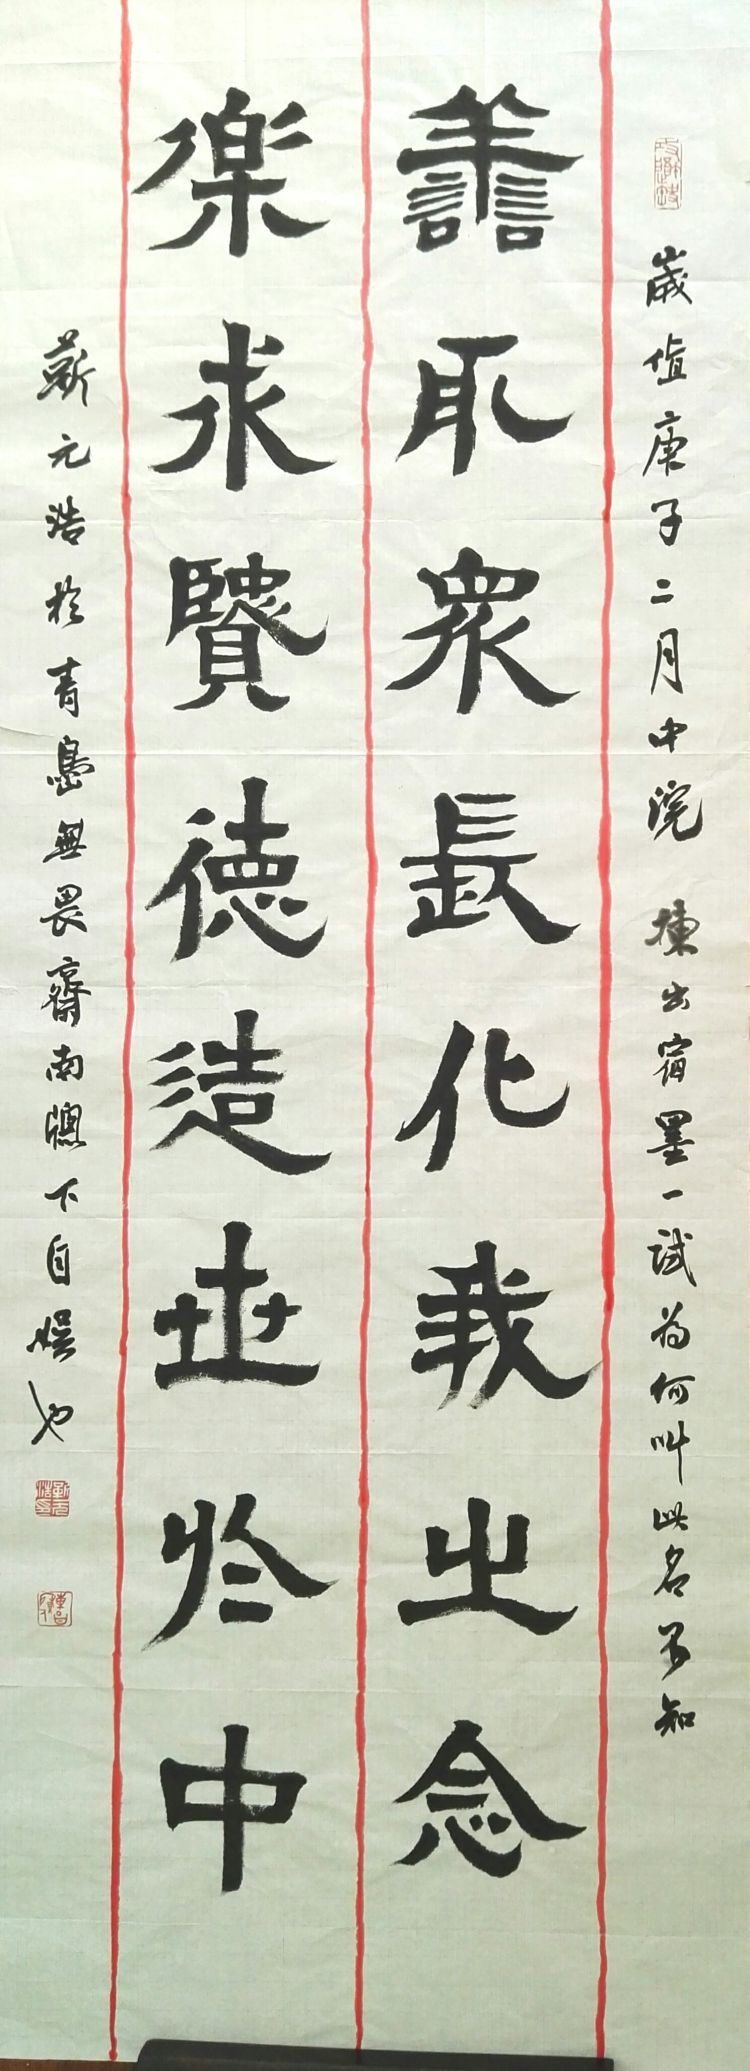 歲值庚子二月中浣 揀出宿墨一試為何叫此名不知
譱取眾長化我之念
樂求賢德造世於中
靳元浩於青島無畏齋南窗下自娛也